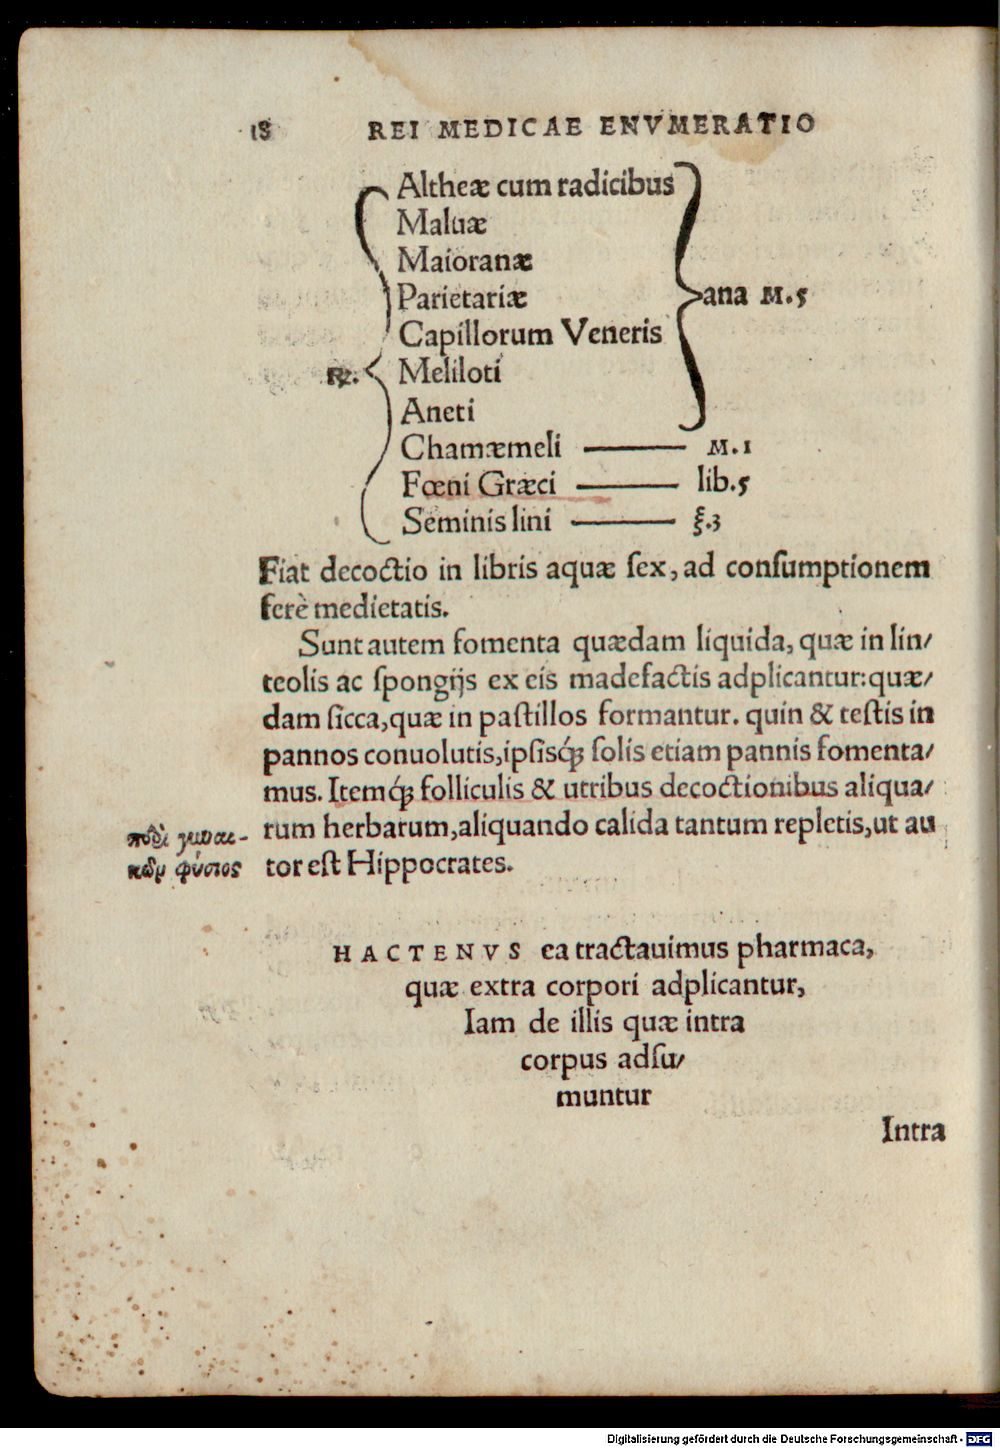 18 REI MEDICAE ENVMERATIO
Altheæ cum radicibus
Maluæ
Maioranæ
Parietariæ
ana M.5
Capillorum Veneris
℞. Meliloti
Aneti
Chamæmeli — M.1
Fœni Græci — lib.5
Seminis lini — ξ.3
Fiat decoctio in libris aquæ ſex, ad conſumptionem
ferè medietatis.
Sunt autem fomenta quædam liquida, quæ in lin/
teolis ac ſpongijs ex eis madefactis adplicantur: quæ/
dam ſicca, quæ in paſtillos formantur. quin & teſtis in
pannos conuolutis, ipſisq́; ſolis etiam pannis fomenta/
mus. Itemq́; folliculis & utribus decoctionibus aliqua/
rum herbarum, aliquando calida tantum repletis, ut au
tor eſt Hippocrates.
περὶ γυναι-
κῶν φύσιος
HACTENVS ea tractauimus pharmaca,
quæ extra corpori adplicantur,
Iam de illis quæ intra
corpus adſu/
muntur
Intra
Digitalisierung gefördert durch die Deutsche Forschungsgemeinschaft - DFG